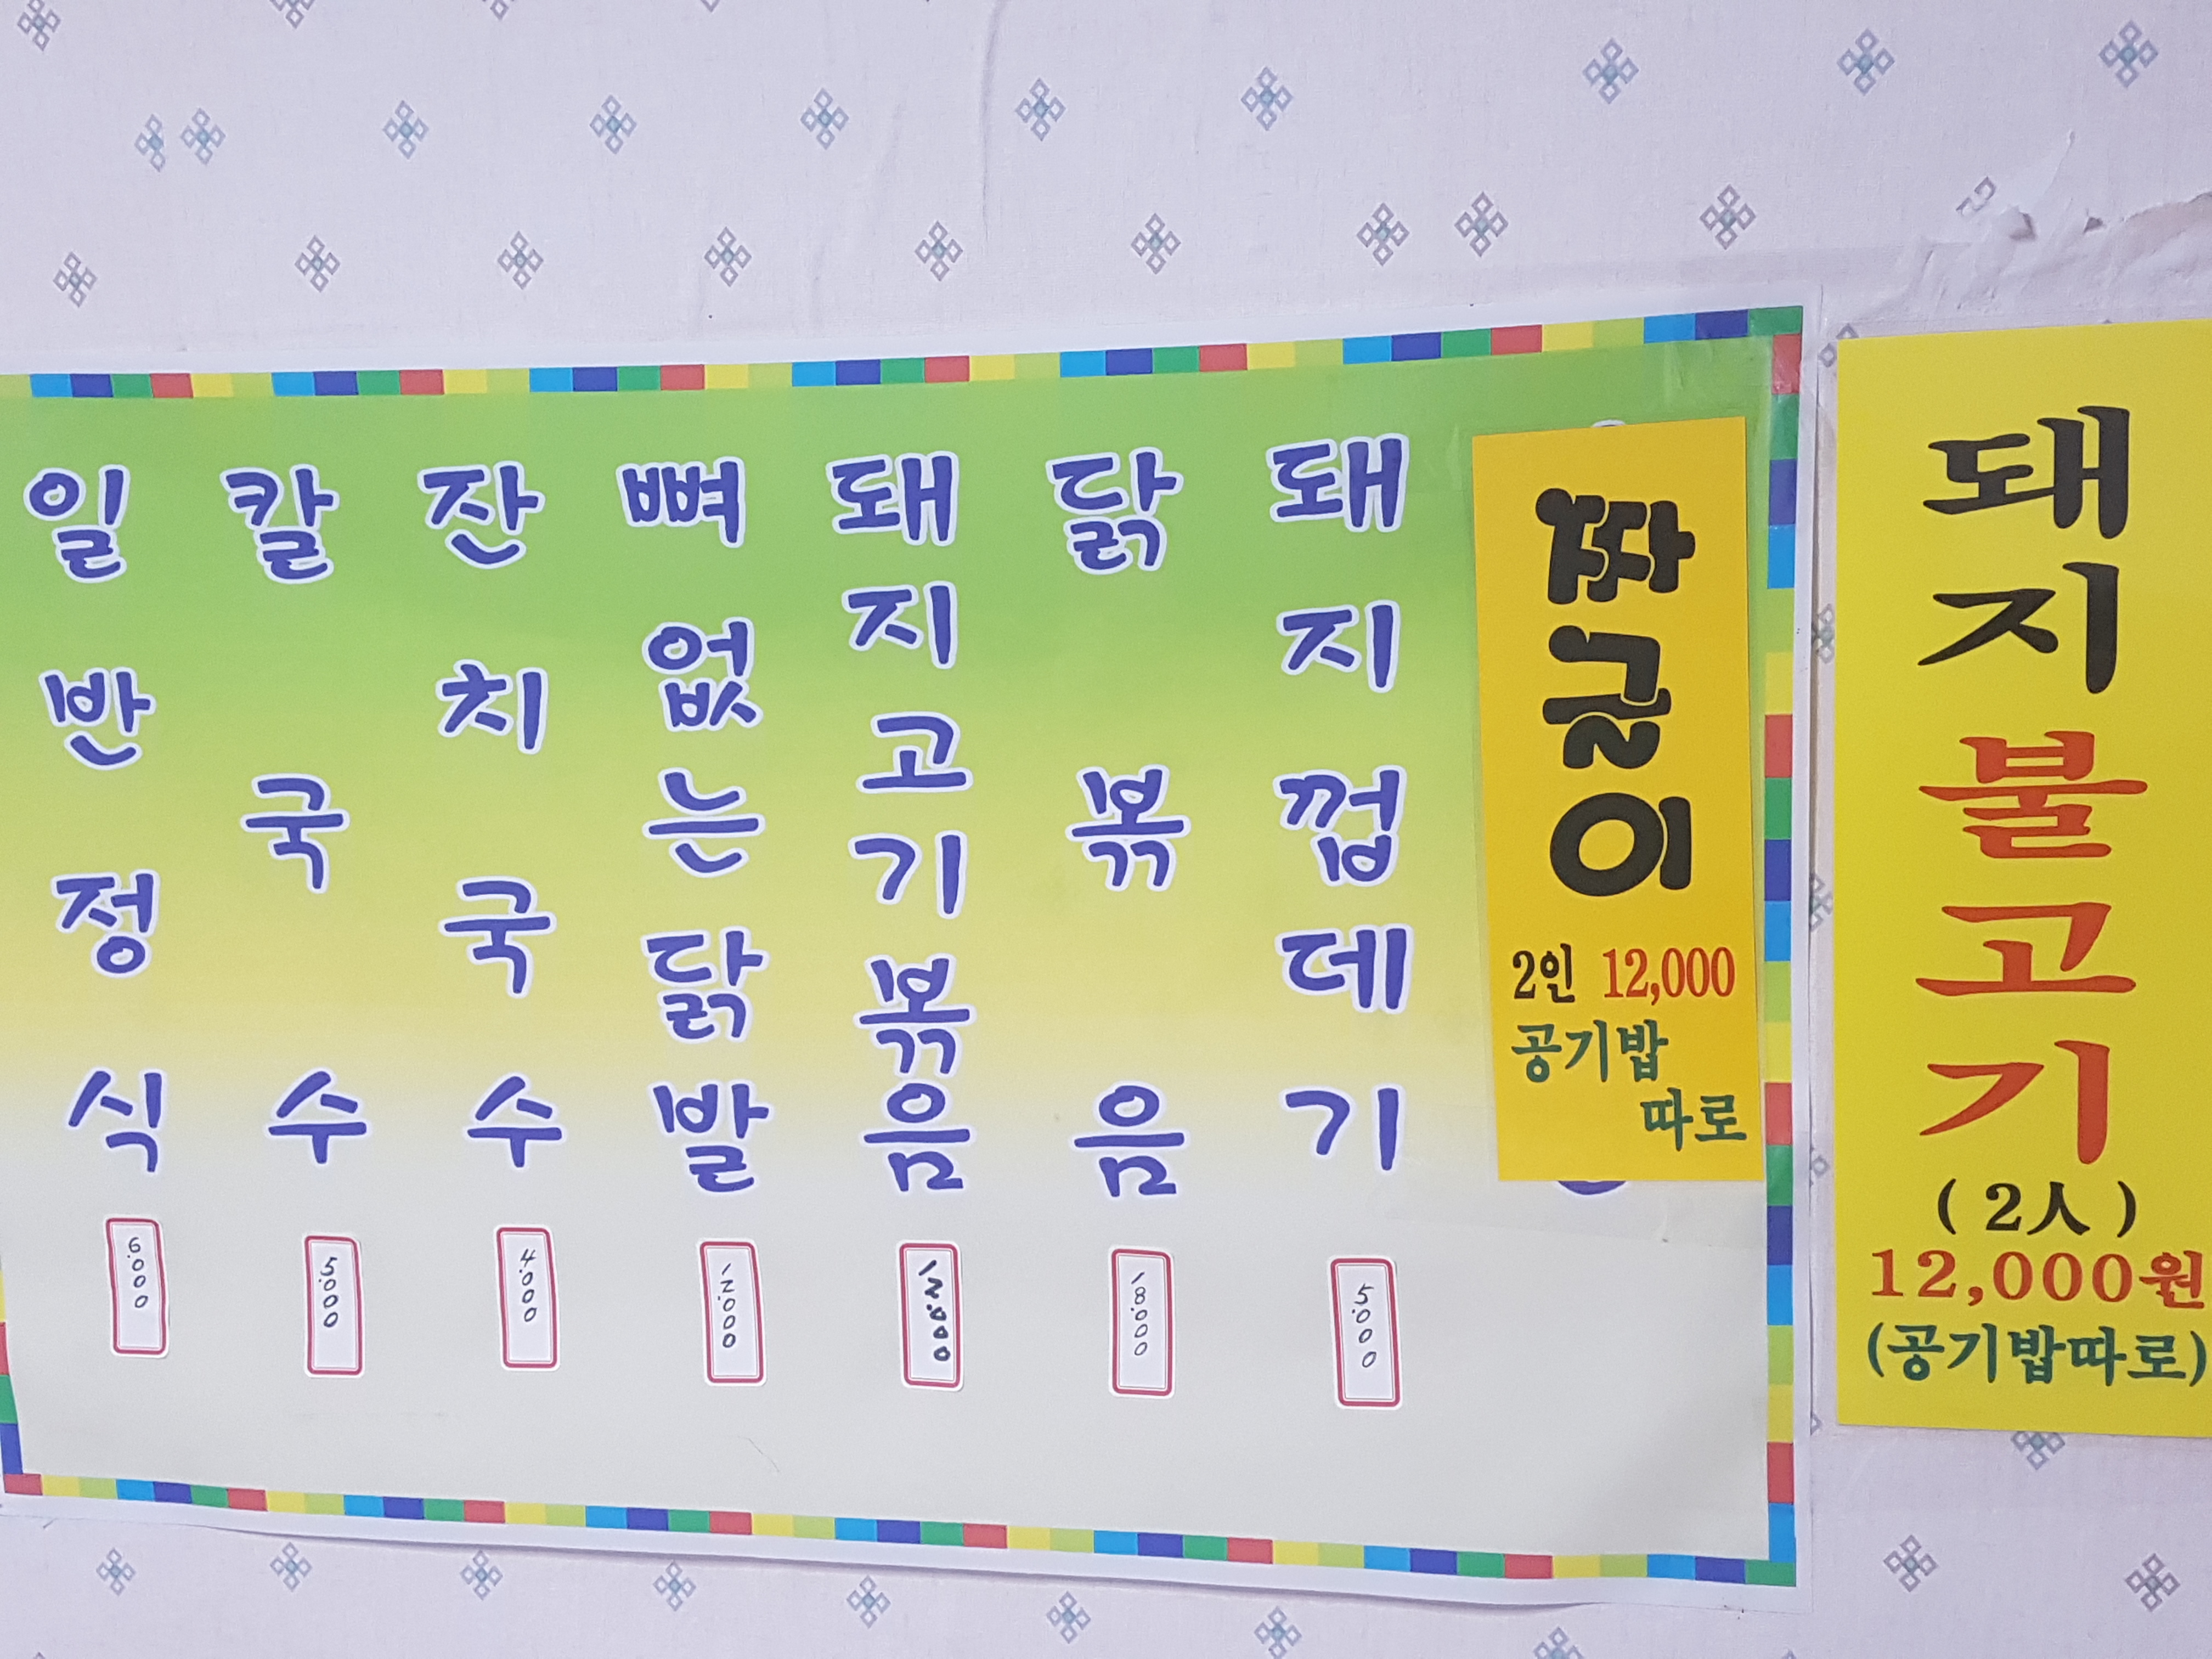 일반정식
6.000
칼국수
5.000
잔치국수
4.000
뼈없는닭발
12.000
돼지고기볶음
12.000
닭볶음
18.000
돼지껍데기
5.000
짜글이
2인 12,000
공기밥
따로
돼지불고기
(2人)
12,000원
(공기밥따로)